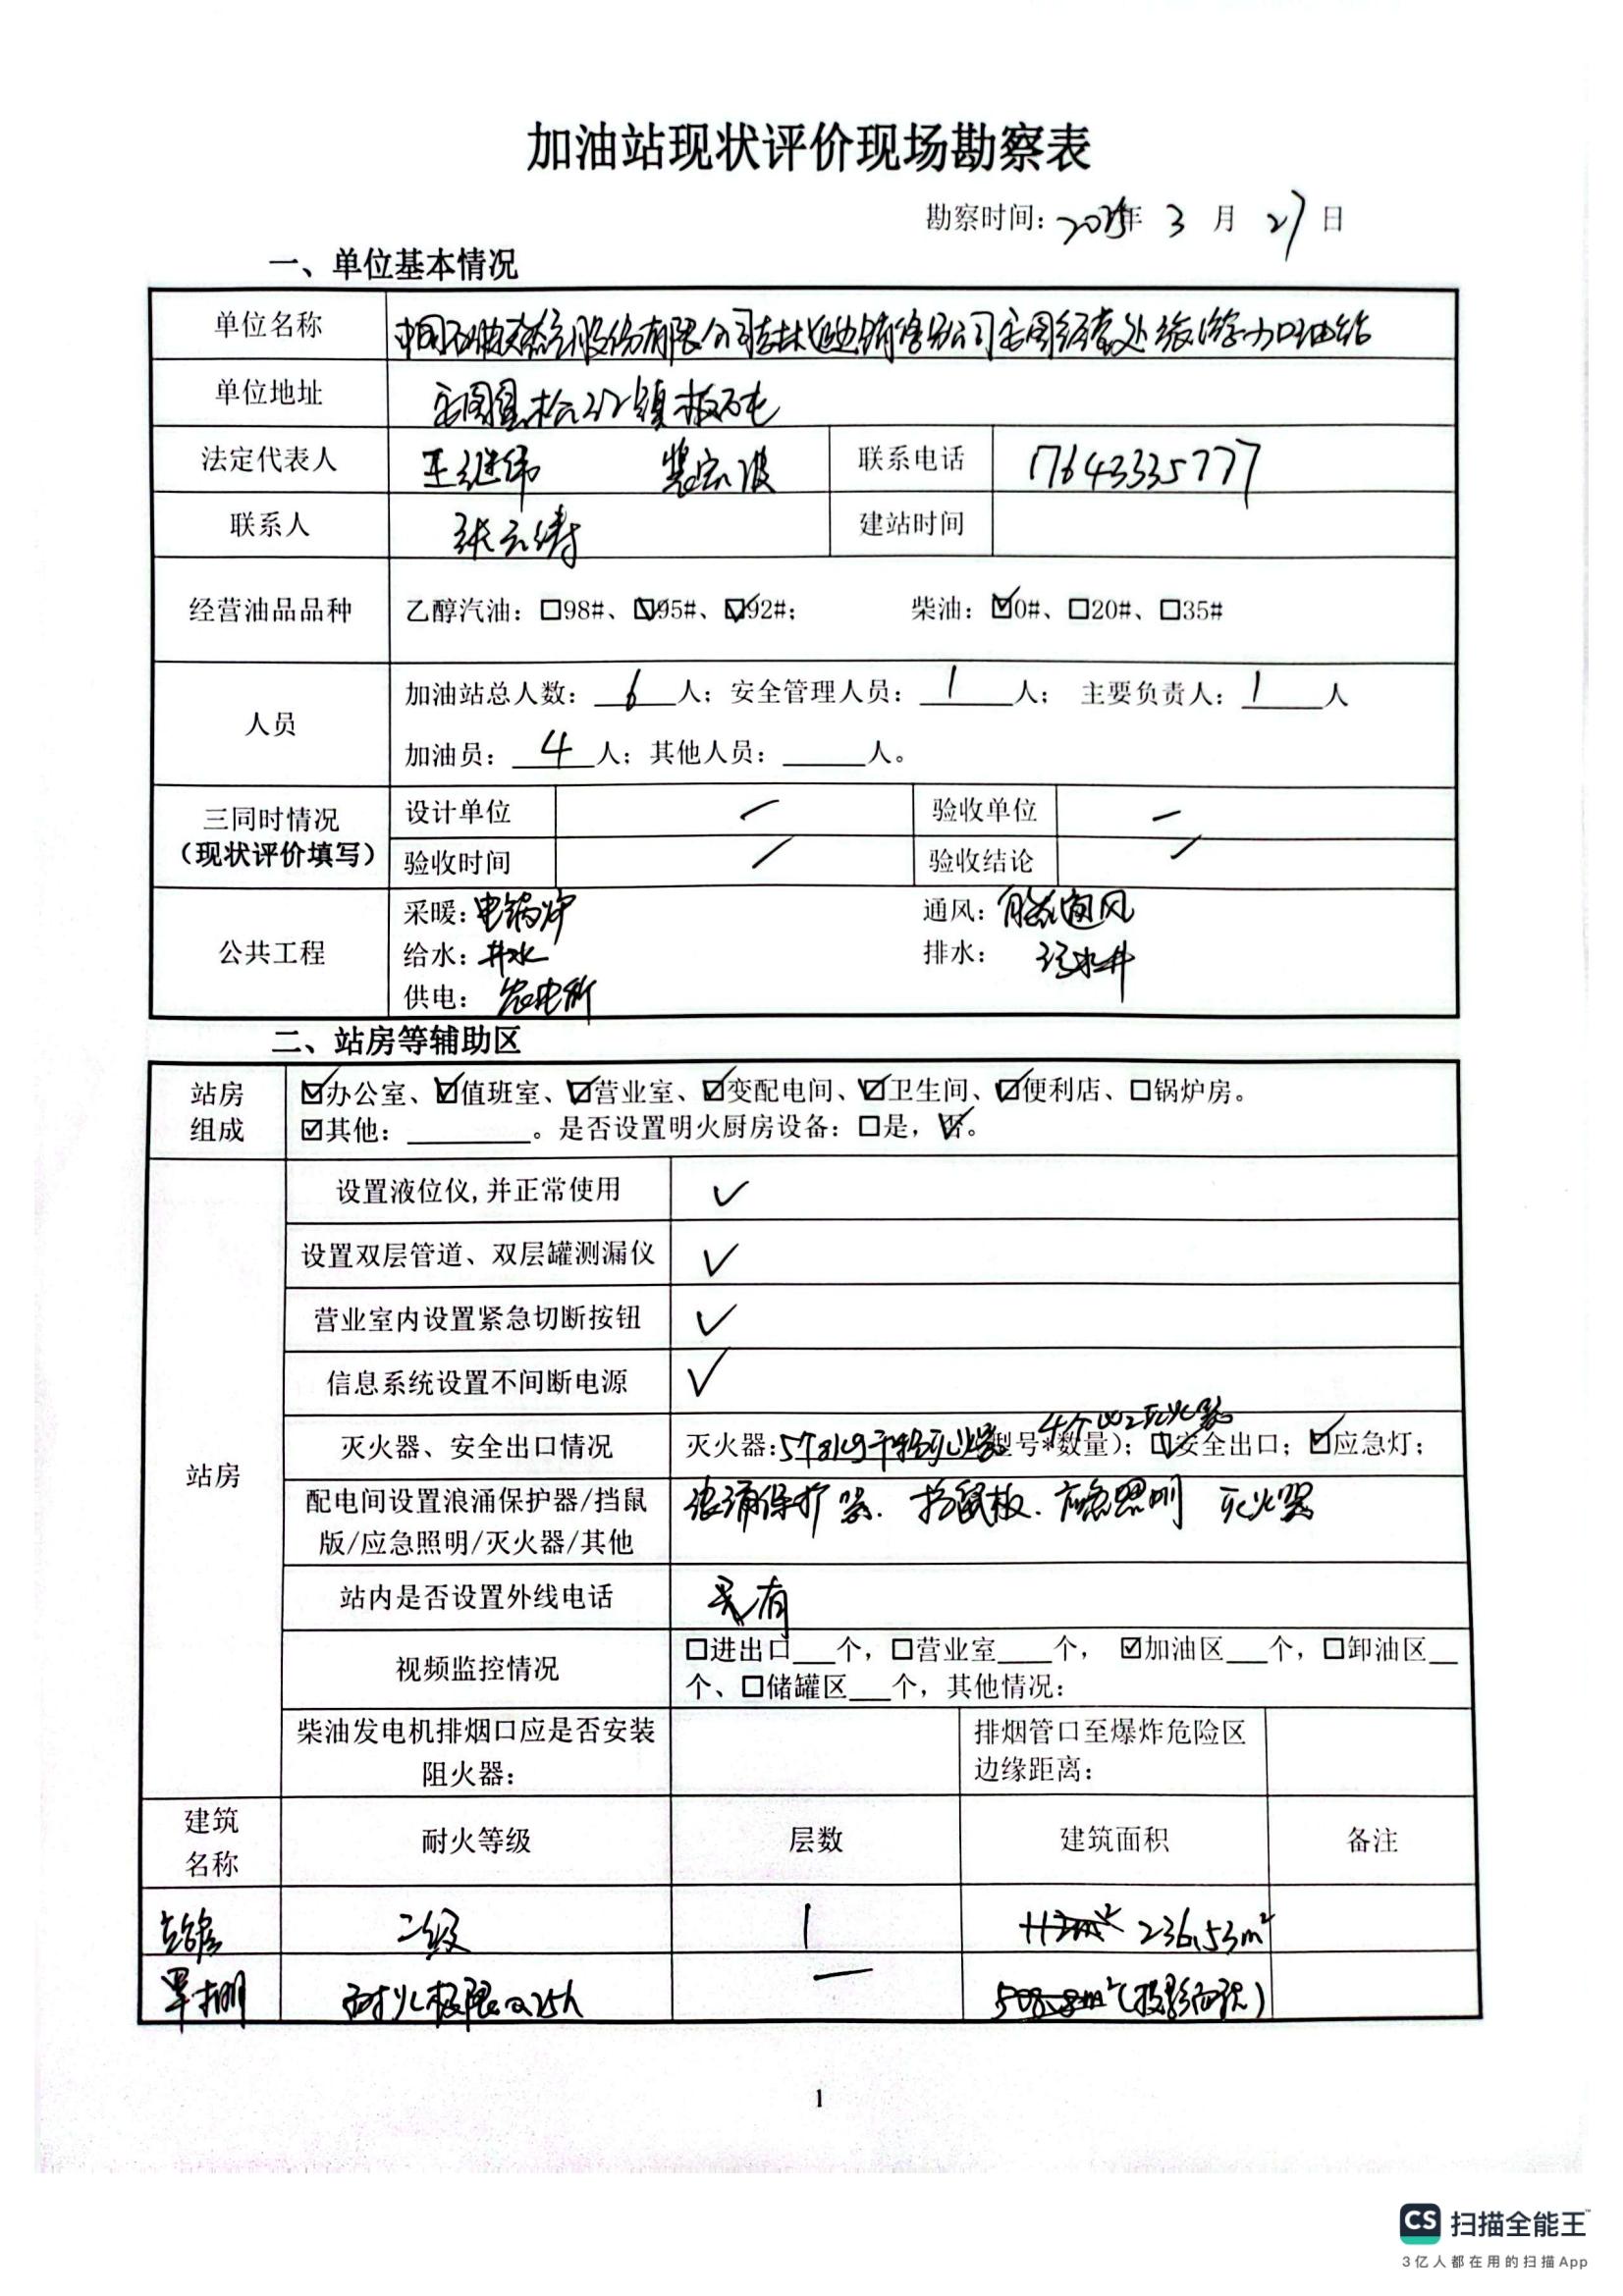 加油站现状评价现场勘察表
勘察时间：2025年 3 月 27 日
一、单位基本情况
单位名称 中国石油天然气股份有限公司吉林延边销售分公司安图经营处 加油站
单位地址 安图县松江镇板石屯
法定代表人 王继伟 裴宏波 联系电话 17643335777
联系人 张云涛 建站时间
经营油品品种 乙醇汽油：☐98#、☑95#、☑92#； 柴油：☑0#、☐20#、☐35#
人员 加油站总人数： 6 人；安全管理人员： 1 人； 主要负责人： 1 人
加油员： 4 人；其他人员：______人。
三同时情况（现状评价填写） 设计单位 — 验收单位 —
验收时间 / 验收结论 /
公共工程 采暖：电锅炉 通风：自然通风
给水：井水 排水： 污水井
供电： 农电所
二、站房等辅助区
站房组成 ☑办公室、☑值班室、☑营业室、☑变配电间、☑卫生间、☑便利店、☐锅炉房。
☑其他：________。是否设置明火厨房设备：☐是，☑否。
站房 设置液位仪,并正常使用 ✓
设置双层管道、双层罐测漏仪 ✓
营业室内设置紧急切断按钮 ✓
信息系统设置不间断电源 ✓
灭火器、安全出口情况 灭火器：5个8kg干粉灭火器 4个CO2灭火器 型号*数量）；☑安全出口；☑应急灯；
配电间设置浪涌保护器/挡鼠版/应急照明/灭火器/其他 浪涌保护器．挡鼠板．应急照明 灭火器
站内是否设置外线电话 有
视频监控情况 ☐进出口___个，☐营业室____个， ☑加油区___个，☐卸油区__
个、☐储罐区___个，其他情况：
柴油发电机排烟口应是否安装阻火器： 排烟管口至爆炸危险区边缘距离：
建筑名称 耐火等级 层数 建筑面积 备注
站房 二级 1 236.53m²
罩棚 耐火极限0.25h — 508.8m²(投影面积)
1
CS 扫描全能王
3亿人都在用的扫描App